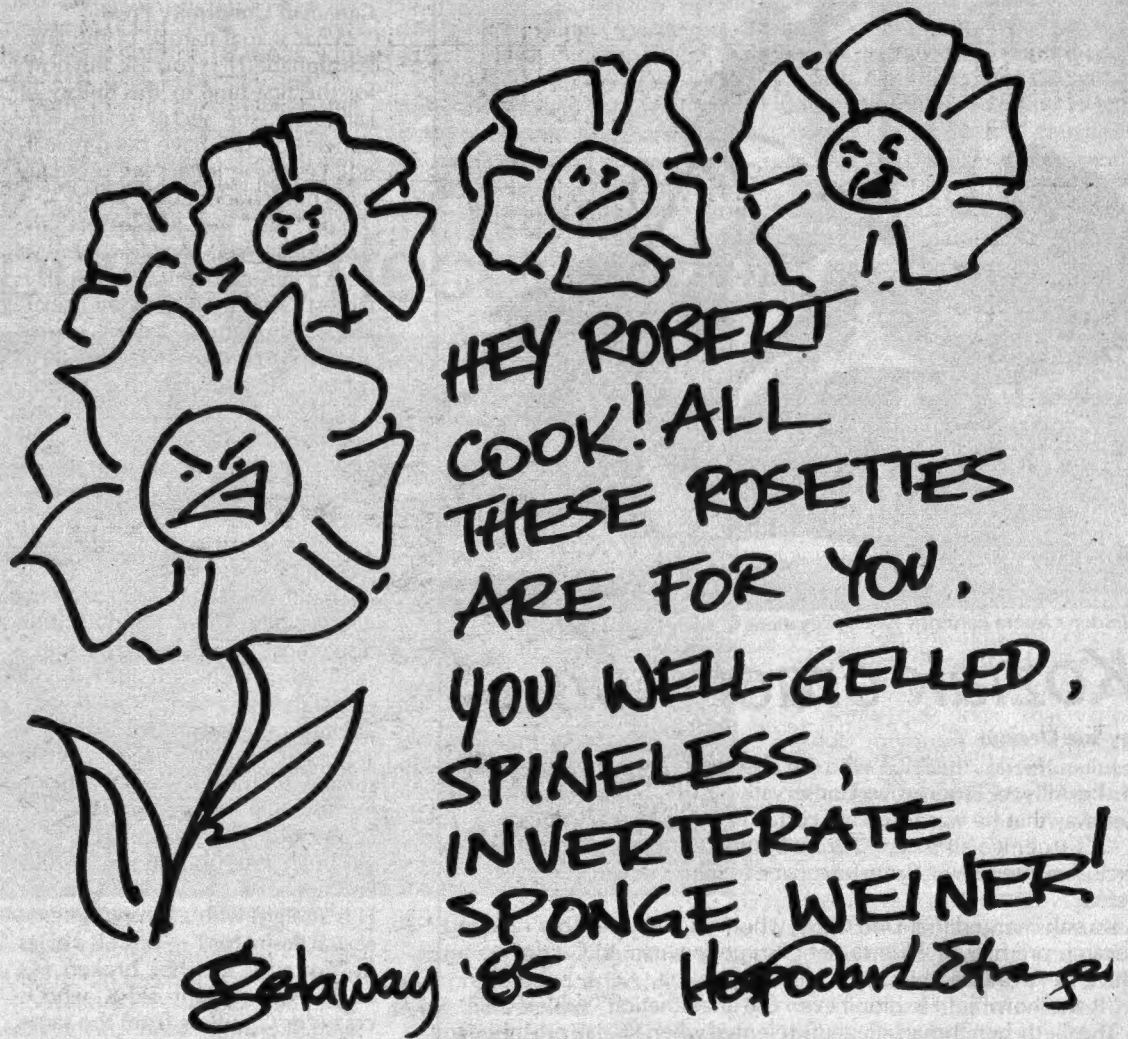 HEY ROBERT
COOK! ALL
THESE ROSETTES
ARE FOR YOU,
YOU WELL-GELLED,
SPINELESS,
INVERTERATE
SPONGE WEINER!
Getaway '85